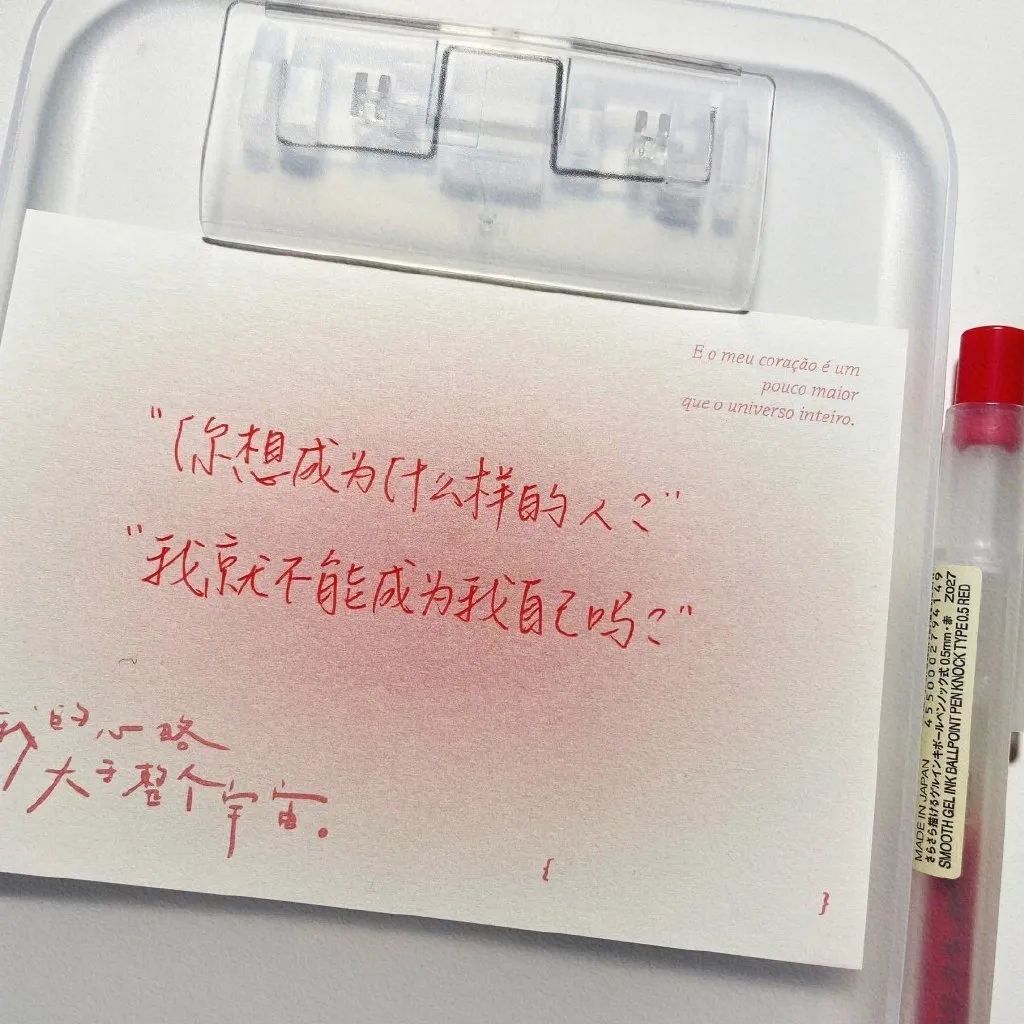 E o meu coração é um
pouco maior
que o universo inteiro.
"你想成为什么样的人？"
"我就不能成为我自己吗？"
我的心略
大于整个宇宙。
{
}
MADE IN JAPAN 4550002794149
さらさら描けるゲルインキボールペンノック式 0.5mm・赤 Z027
SMOOTH GEL INK BALLPOINT PEN KNOCK TYPE 0.5 RED